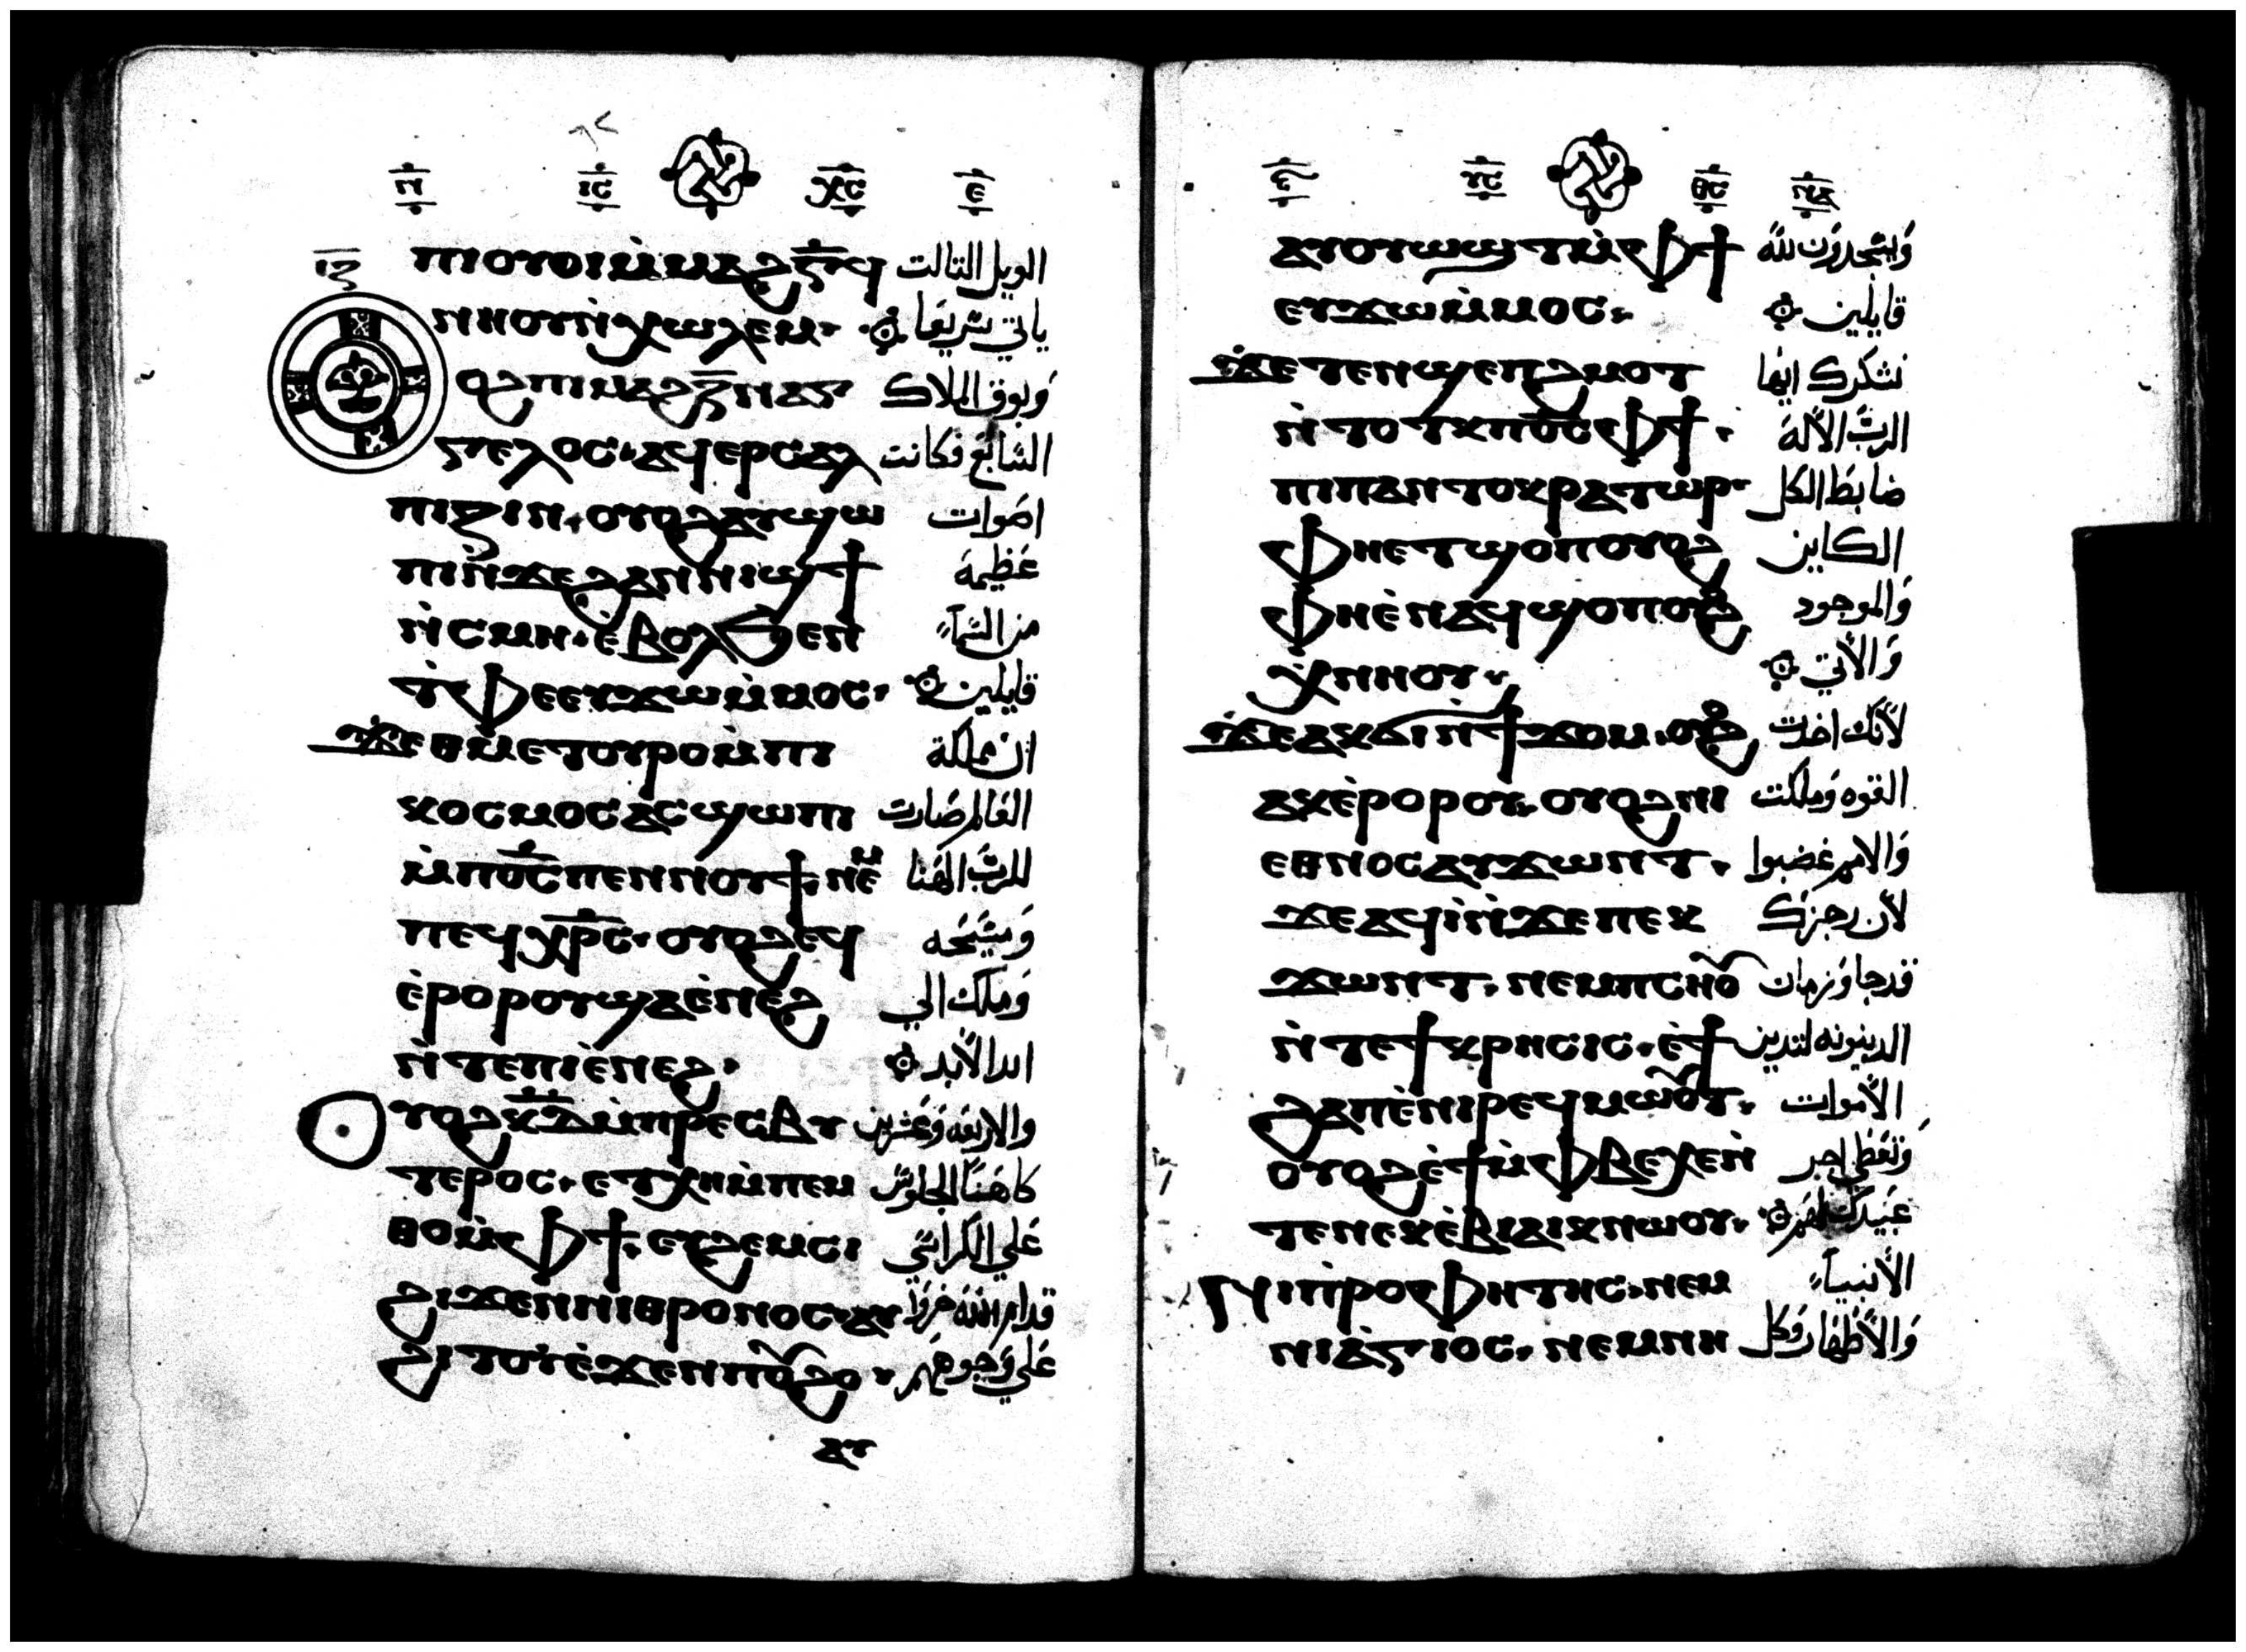 ⲛ̅ ⲓ̅ⲥ̅ ⲭ̅ⲥ̅ ⲉ̅
ⲡⲓⲟⲩⲟⲓ ⲙ̀ⲙⲁϩⲅ̅ ϥ الويل التالت
ⲛⲏⲟⲩ ⲛ̀ⲭⲱⲗⲉⲙ· ياتي سريعا
ⲟϩ ⲡⲓⲙⲁϩⲍ̅ ⲛⲁⲅ وبوق الملاك
ⲅⲉⲗⲟⲥ· ⲁϥⲉⲣⲥⲁⲗ السابع فكانت
ⲡⲓⲍⲓⲛ· ⲟⲩⲟϩ ⲁⲩϣⲱ اصوات
ⲡⲓ ⲛ̀ϫⲉ ϩⲁⲛⲛⲓϣϯ عظيمة
ⲛ̀ⲥⲙⲏ· ⲉ̀ⲃⲟⲗ ϧⲉⲛ من السماء
ⲧ̀ⲫⲉ ⲉⲩϫⲱ ⲙ̀ⲙⲟⲥ· قايلين
ϫⲉ ⲑⲙⲉⲧⲟⲩⲣⲟ ⲙ̀ⲡⲓ ان مملكة
ⲕⲟⲥⲙⲟⲥ ⲁⲥϣⲱⲡⲓ العالم صارت
ⲙ̀ⲡⲟ̅ⲥ̅ ⲡⲉⲛⲛⲟⲩϯ· ⲛⲉⲙ للرب الهنا
ⲡⲉϥⲭ̅ⲣ̅ⲥ̅· ⲟⲩⲟϩ ⲉϥ ومسيحه
ⲉ̀ⲣⲟⲣⲟⲩ ϣⲁ ⲉ̀ⲛⲉϩ وملك الي
ⲛ̀ⲧⲉ ⲡⲓⲉ̀ⲛⲉϩ· ابد الابد
ⲩⲟϩ ⲕ̅ⲇ̅ ⲙ̀ⲡⲣⲉⲥⲃⲩ والاربعة وعشرين
ⲧⲉⲣⲟⲥ· ⲉⲧⲭⲏ ⲙ̀ⲡⲉⲙ كاهنا الجلوس
ⲑⲟ ⲙ̀ⲫϯ· ⲉⲩϩⲉⲙⲥⲓ علي الكراسي
ϩⲓϫⲉⲛ ⲛⲓⲑⲣⲟⲛⲟⲥ· ⲁⲩ قدام الله خروا
ϩⲓⲧⲟⲩ ⲉ̀ϫⲉⲛ ⲡⲟⲩϩⲟ· علي وجوههم
ⲁⲩ
ⲩ̅ⲥ̅ ⲑ̅ⲥ̅
ⲁⲩⲟⲩⲱϣⲧ ⲙ̀ⲫϯ ويسجدون لله
ⲉⲩϫⲱ ⲙ̀ⲙⲟⲥ· قايلين
ϫⲉ ⲧⲉⲛϣⲉⲡϩⲙⲟⲧ نشكرك ايها
ⲛ̀ⲧⲟⲧⲕ ⲡⲟ̅ⲥ̅ ⲫϯ· الرب الاله
ⲡⲓⲡⲁⲛⲧⲟⲕⲣⲁⲧⲱⲣ· ضابط الكل
ⲫⲏ ⲉⲧϣⲟⲡ ⲟⲩⲟϩ الكاين
ⲫⲏ ⲉ̀ⲛⲁϥϣⲟⲡ ⲟⲩⲟϩ والموجود
ϥ̀ⲛⲏⲟⲩ· والاتي
ϫⲉ ⲁⲕϭⲓ ⲛ̀ϯϫⲟⲙ· ⲟⲩⲟϩ لانك اخدت
ⲁⲕⲉ̀ⲣⲟⲣⲟⲩ· ⲟⲩⲟϩ ⲛⲓ القوه وملكت
ⲉⲑⲛⲟⲥ ⲁⲩϫⲱⲛⲧ· والامم غضبوا
ϫⲉ ⲁϥⲓ̀ ⲛ̀ϫⲉ ⲡⲉⲕ لان رجزك
ϫⲱⲛⲧ· ⲛⲉⲙ ⲡⲥⲏⲟⲩ قد جا وزمان
ⲛ̀ⲧⲉ ϯⲕⲣⲏⲥⲓⲥ· ⲉ̀ϯ الدينونه لتدين
ϩⲁⲡ ⲉ̀ⲛⲓⲣⲉϥⲙⲱⲟⲩⲧ· الاموات
ⲟⲩⲟϩ ⲉ̀ϯ ⲙ̀ⲫⲃⲉⲭⲉ ⲛ̀ وتعطي اجر
ⲧⲉ ⲛⲉⲕⲉ̀ⲃⲓⲁⲓⲕ ⲛⲱⲟⲩ· عبيدك لهم
ⲛⲓⲡ̀ⲣⲟⲫⲏⲧⲏⲥ· ⲛⲉⲙ الانبياء
ⲛⲓⲁ̀ⲅⲓⲟⲥ· ⲛⲉⲙ ⲛⲏ والاطهار وكل